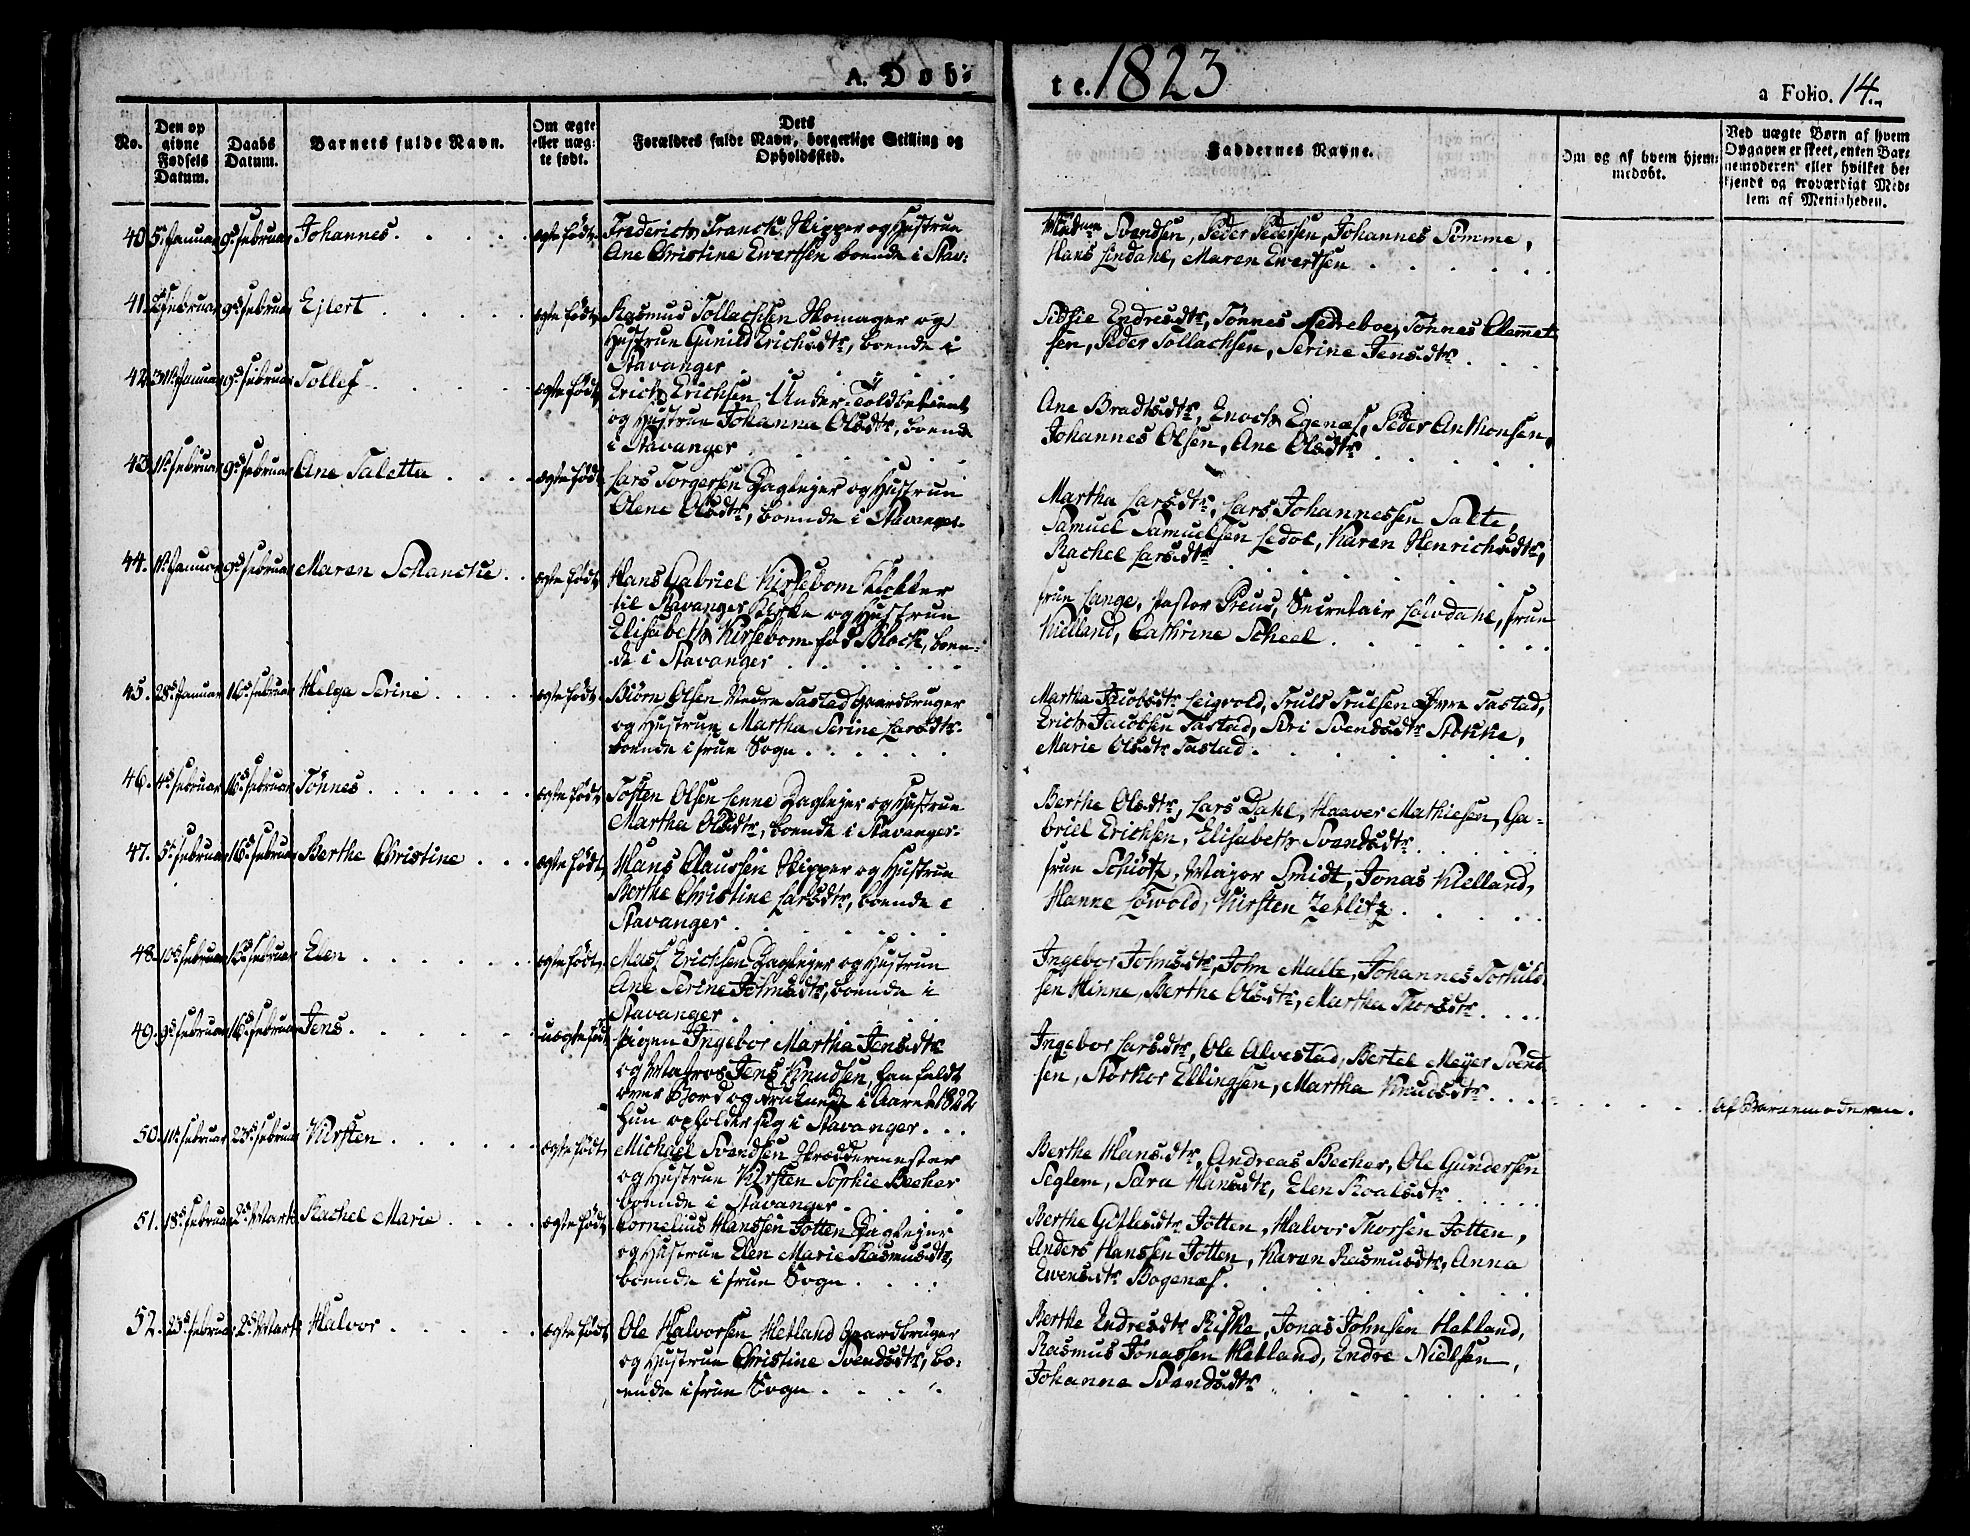 A. Døb-
te. 1823
a Folio. 14.
No.
Den op
givne
Fødsels
Datum.
Daabs
Datum.
Barnets fulde Navn.
Om ægte
eller uæg-
te født.
Dets
Forældres fulde Navn, borgerlige Stilling og
Opholdssted.
Faddernes Navne.
Om og af hvem hjem-
medøbt.
Ved uægte Børn af hvem
Opgaven er skeet, enten Bar-
nemoderen eller hvilket be-
kjendt og troværdigt Med-
lem af Menigheden.
40. 5t Januar 9d Februar Johannes. ægte født. Frederich Franck Skipper og Hustrue
Ane Christine Ewertsen boende i Stav:
Madame Svendsen, Peder Pedersen, Johannes Sømme,
Hans Lindahl, Maren Ewertsen
41. Februar 9d Februar Ejlert ægte født Rasmus Tollachsen Skomager og
Hustrue Gunild Erichsdtr, boende i
Stavanger
Sidsie Endresdtr, Tønnes Nedreboe, Tønnes Clemmet
sen, Peder Tollachsen, Serine Jensdtr
42. 31te Januar 9d Februar Tollef ægte født Erich Erichsen Under-Toldbetient
og Hustrue Johanna Olsdtr, boende
i Stavanger
Ane Bradtsdtr, Enoch Egenæs, Peder Anthonsen,
Johannes Olsen, Ane Olsdtr
43. 1te Februar 9d Februar Ane Taletta ægte født Lars Torgersen Dagleier og Hustrue
Olene Olsdtr, boende i Stavanger
Martha Larsdtr, Lars Johannessen Salte,
Samuel Samuelsen Ledol, Karen Henrichsdtr,
Rachel Larsdtr
44. Januar 9d Februar Maren Schancke ægte født Hans Gabriel Kirsebom Klokker
til Stavanger Kirke og Hustrue
Elisabeth Kirsebom fød Block, boen-
de i Stavanger
Frue Lange, Pastor Preus, Secretair Löwdahl, Frue
Kielland, Cathrine Scheel
45. 28d Januar 16d Februar Helga Serine ægte født Biörn Olsen Nedre Tastad Gaardbruger
og Hustrue Martha Serine Larsdtr
boende i Frue Sogn
Martha Jacobsdtr Leigvold, Truls Trulsen Øvre Tastad,
Erich Jacobsen Tastad, Siri Svensdtr Stokke,
Marie Olsdtr Tastad
46. 4d Februar 16d Februar Tönnes ægte født Tosten Olsen Lenne Dagleier og Hustrue
Martha Olsdtr, boende i Stavanger
Berthe Olsdtr, Lars Dahl, Haaver Mathiesen, Ga-
briel Erichsen, Elisabeth Svendsdtr
47. 5t Februar 16d Februar Berthe Christine ægte født Hans Claussen Skipper og Hustrue
Berthe Christine Larsdtr, boende i
Stavanger
Frue Schiötz, Major Smidt, Jonas Kielland,
Hanne Löwold, Kirsten Zetlitz
48. 10d Februar 16d Februar Elen ægte født Mass Erichsen Dagleier og Hustrue
Ane Serine Johnsdtr, boende i
Stavanger
Ingebor Johnsdtr, John Malle, Johannes Torkild-
sen Hinne, Berthe Olsdtr, Martha Thorsdtr
49. 9d Februar 16d Februar Jens. uægte født Pigen Ingebor Martha Jensdtr
og Matros Jens Knudsen, han faldt
over Bord og druknede i Aaret 1822
hun opholder sig i Stavanger
Ingebor Larsdtr, Ole Alvestad, Bertel Meyer Svend
sen, Storkor Ellingsen, Martha Knudsdtr
af Barnemoderen.
50. 11te Februar 23d Februar Kirsten ægte født Michael Svendsen Skræddermester
og Hustrue Kirsten Sophie Becher
boende i Stavanger
Berthe Hansdtr, Andreas Becher, Ole Gundersen
Seglem, Sara Hansdtr, Elen Roalsdtr
51. 18d Februar 2d Marts Rachel Marie ægte født Cornelius Hanssen Jotten Dagleier
og Hustrue Elen Marie Rasmusdtr,
boende i Frue Sogn
Berthe Gitlesdtr Jotten, Halvor Thorsen Jotten,
Anders Hanssen Jotten, Karen Rasmusdtr, Anna
Ewensdtr Bogenæs.
52. 23d Februar 2d Marts Halvor ægte født Ole Halvorsen Hetland Gaardbruger
og Hustrue Christine Svendsdtr, bo-
ende i Frue Sogn
Berthe Endresdtr Riske, Jonas Johnsen Hetland,
Rasmus Jonassen Hetland, Endre Nielsen,
Johanne Svendsdtr